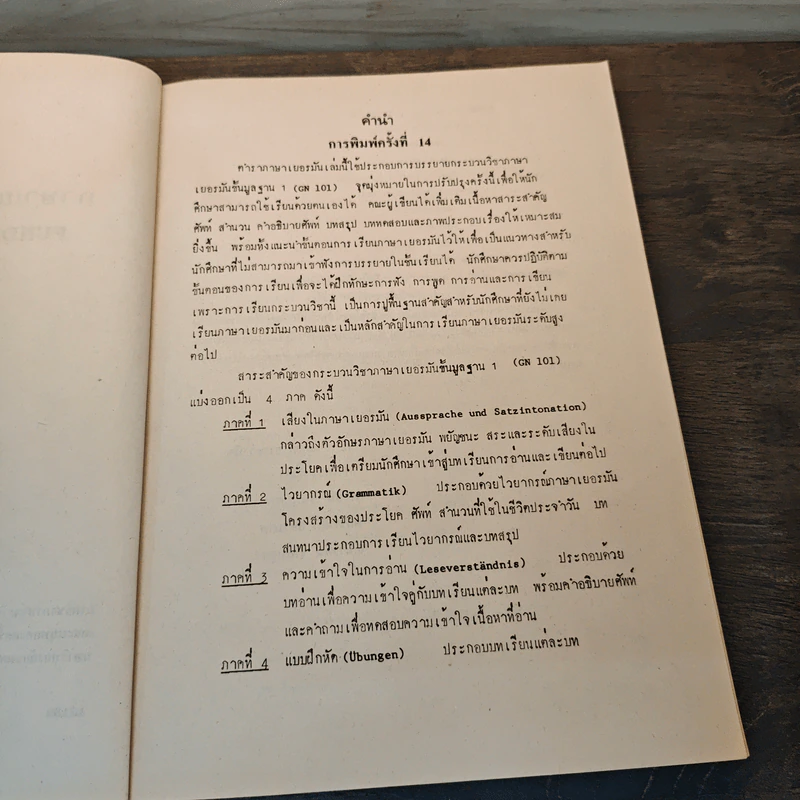 คำนำ
การพิมพ์ครั้งที่ 14
ตำราภาษาเยอรมันเล่มนี้ใช้ประกอบการบรรยายกระบวนวิชาภาษา
เยอรมันขั้นมูลฐาน 1 (GN 101) จุดมุ่งหมายในการปรับปรุงครั้งนี้เพื่อให้นัก
ศึกษาสามารถใช้เรียนด้วยตนเองได้ คณะผู้เขียนได้เพิ่มเติมเนื้อหาสาระสำคัญ
ศัพท์ สำนวน คำอธิบายศัพท์ บทสรุป บททดสอบและภาพประกอบเรื่องให้เหมาะสม
ยิ่งขึ้น พร้อมทั้งแนะนำขั้นตอนการเรียนภาษาเยอรมันไว้ให้เพื่อเป็นแนวทางสำหรับ
นักศึกษาที่ไม่สามารถมาเข้าฟังการบรรยายในชั้นเรียนได้ นักศึกษาควรปฏิบัติตาม
ขั้นตอนของการเรียนเพื่อจะได้ฝึกทักษะการฟัง การพูด การอ่านและการเขียน
เพราะการเรียนกระบวนวิชานี้ เป็นการปูพื้นฐานสำคัญสำหรับนักศึกษาที่ยังไม่เคย
เรียนภาษาเยอรมันมาก่อนและเป็นหลักสำคัญในการเรียนภาษาเยอรมันระดับสูง
ต่อไป
สาระสำคัญของกระบวนวิชาภาษาเยอรมันขั้นมูลฐาน 1 (GN 101)
แบ่งออกเป็น 4 ภาค ดังนี้
ภาคที่ 1 เสียงในภาษาเยอรมัน (Aussprache und Satzintonation)
กล่าวถึงตัวอักษรภาษาเยอรมัน พยัญชนะ สระและระดับเสียงใน
ประโยคเพื่อเตรียมนักศึกษาเข้าสู่บทเรียนการอ่านและเขียนต่อไป
ภาคที่ 2 ไวยากรณ์ (Grammatik) ประกอบด้วยไวยากรณ์ภาษาเยอรมัน
โครงสร้างของประโยค ศัพท์ สำนวนที่ใช้ในชีวิตประจำวัน บท
สนทนาประกอบการเรียนไวยากรณ์และบทสรุป
ภาคที่ 3 ความเข้าใจในการอ่าน (Leseverständnis) ประกอบด้วย
บทอ่านเพื่อความเข้าใจคู่กับบทเรียนแต่ละบท พร้อมคำอธิบายศัพท์
และคำถามเพื่อทดสอบความเข้าใจเนื้อหาที่อ่าน
ภาคที่ 4 แบบฝึกหัด (Übungen) ประกอบบทเรียนแต่ละบท